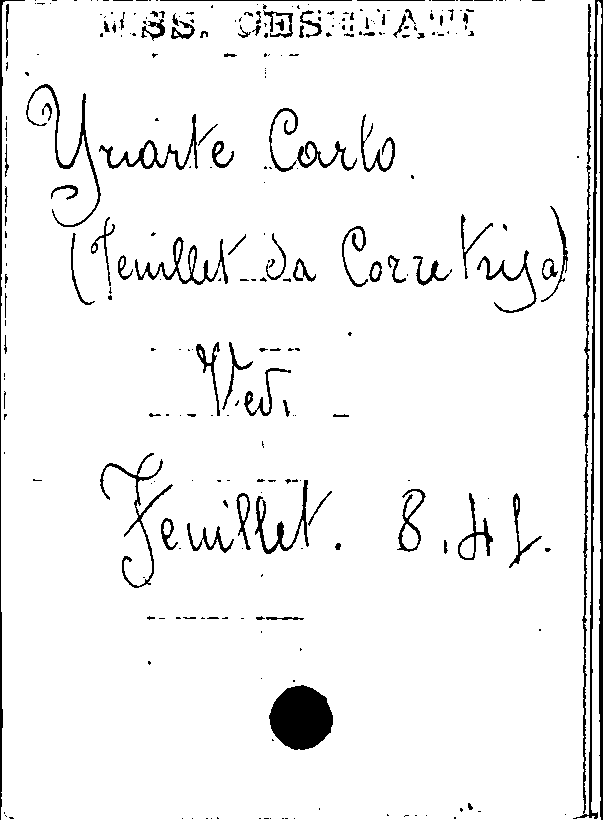 MSS. CESENATI
Yriarte Carlo.
(Feuillet da
Ved.
Feuillet. 8.41.